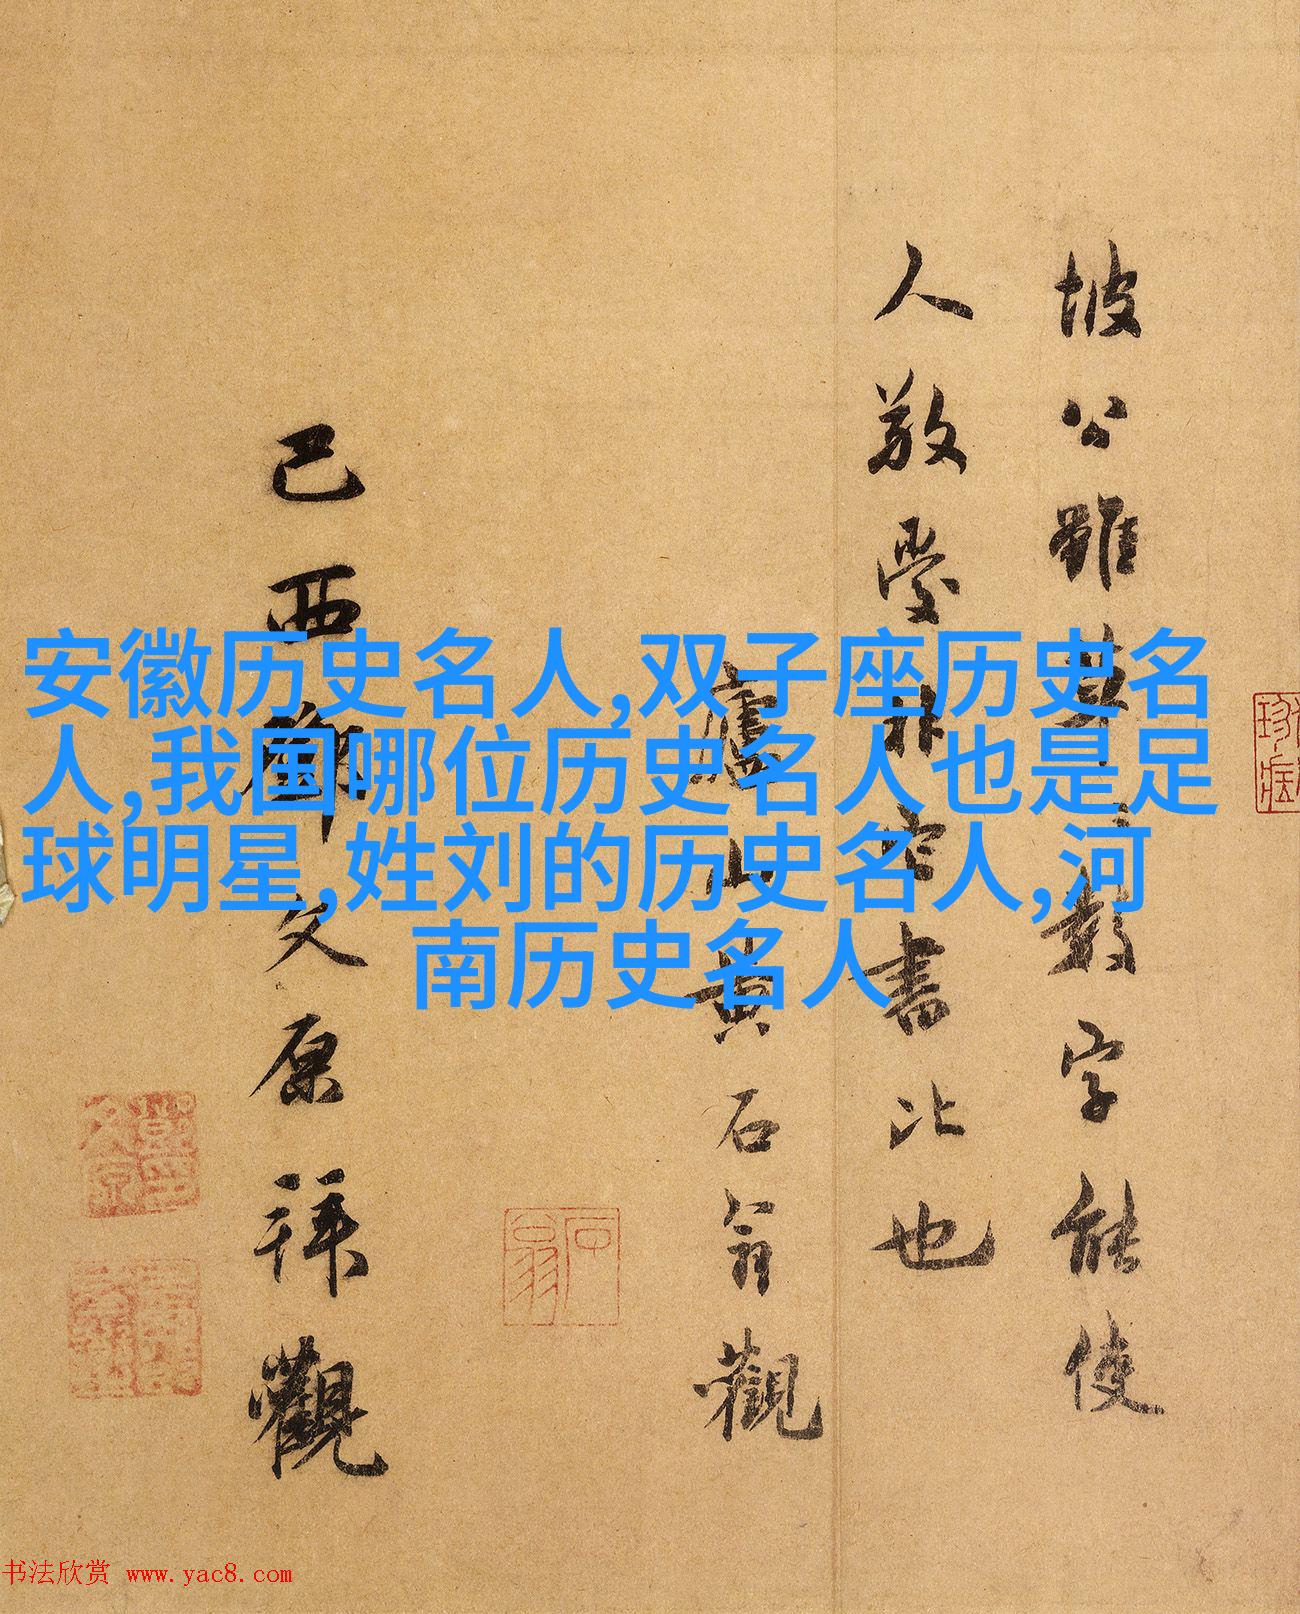 安徽历史名人,双子座历史名
人,我国哪位历史名人也是足
球明星,姓刘的历史名人,河
南历史名人
坡公雖草草數字能使
人敬愛非它書比也
廬山黄石翁觀
己酉鄧文原拜觀
石翁
书法欣赏 www.yac8.com